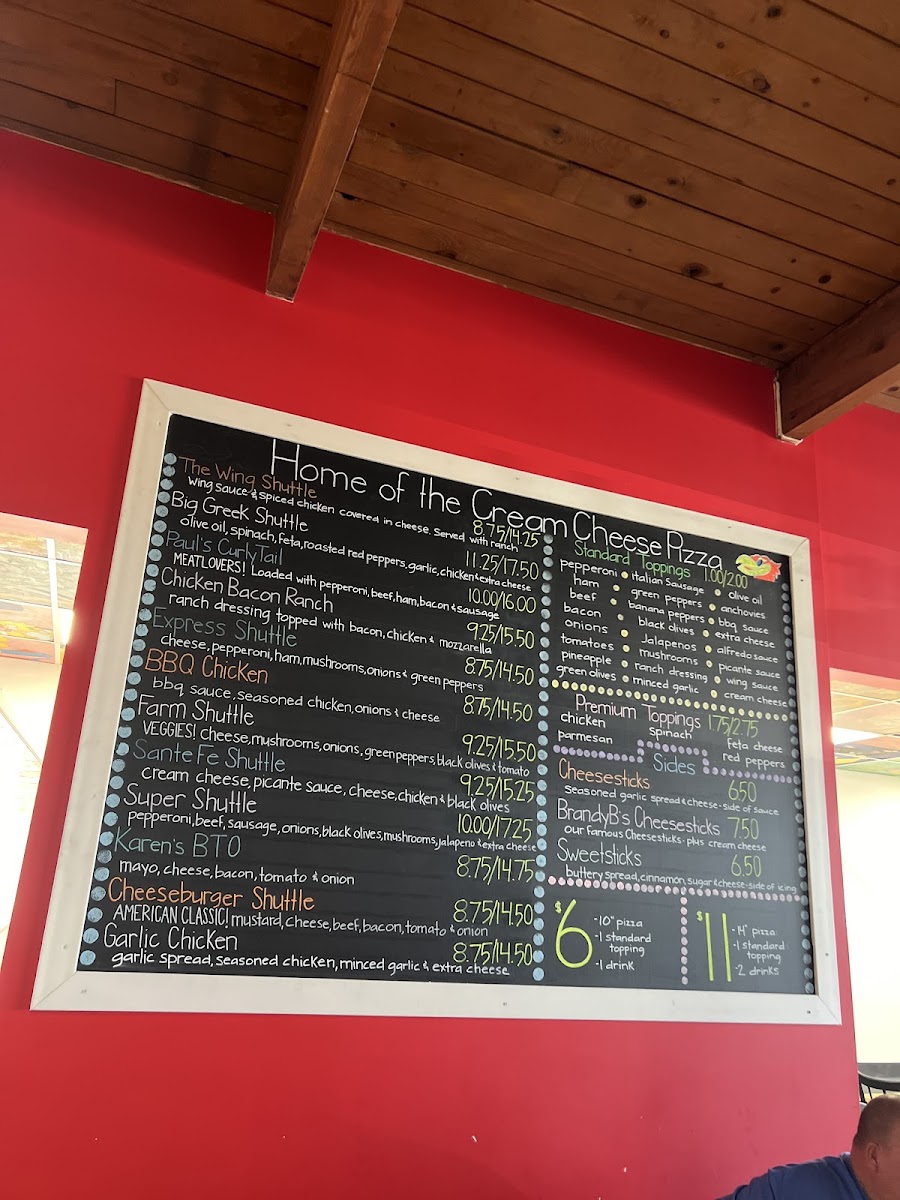 Home of the Cream Cheese Pizza
The Wing Shuttle 8.75/14.25
wing sauce & spiced chicken covered in cheese. Served with ranch
Big Greek Shuttle 11.25/17.50
olive oil, spinach, feta, roasted red peppers, garlic, chicken & extra cheese
Paul's CurlyTail 10.00/16.00
MEATLOVERS! Loaded with pepperoni, beef, ham, bacon & sausage
Chicken Bacon Ranch 9.25/15.50
ranch dressing topped with bacon, chicken & mozzarella
Express Shuttle 8.75/14.50
cheese, pepperoni, ham, mushrooms, onions & green peppers
BBQ Chicken 8.75/14.50
bbq sauce, seasoned chicken, onions & cheese
Farm Shuttle 9.25/15.50
VEGGIES! cheese, mushrooms, onions, green peppers, black olives & tomato
Sante Fe Shuttle 9.25/15.25
cream cheese, picante sauce, cheese, chicken & black olives
Super Shuttle 10.00/17.25
pepperoni, beef, sausage, onions, black olives, mushrooms, jalapeno & extra cheese
Karen's BTO 8.75/14.75
mayo, cheese, bacon, tomato & onion
Cheeseburger Shuttle 8.75/14.50
AMERICAN CLASSIC! mustard, cheese, beef, bacon, tomato & onion
Garlic Chicken 8.75/14.50
garlic spread, seasoned chicken, minced garlic & extra cheese
Standard Toppings 1.00/2.00
pepperoni
ham
beef
bacon
onions
tomatoes
pineapple
green olives
italian sausage
green peppers
banana peppers
black olives
Jalapenos
mushrooms
ranch dressing
minced garlic
olive oil
anchovies
bbq sauce
extra cheese
alfredo sauce
picante sauce
wing sauce
cream cheese
Premium Toppings 1.75/2.75
chicken spinach feta cheese
parmesan red peppers
Sides
Cheesesticks 6.50
seasoned garlic spread & cheese - side of sauce
BrandyB's Cheesesticks 7.50
our famous Cheesesticks - plus cream cheese
Sweetsticks 6.50
buttery spread, cinnamon, sugar & cheese - side of icing
$6
-10" pizza
-1 standard
topping
-1 drink
$11
-14" pizza
-1 standard
topping
-2 drinks